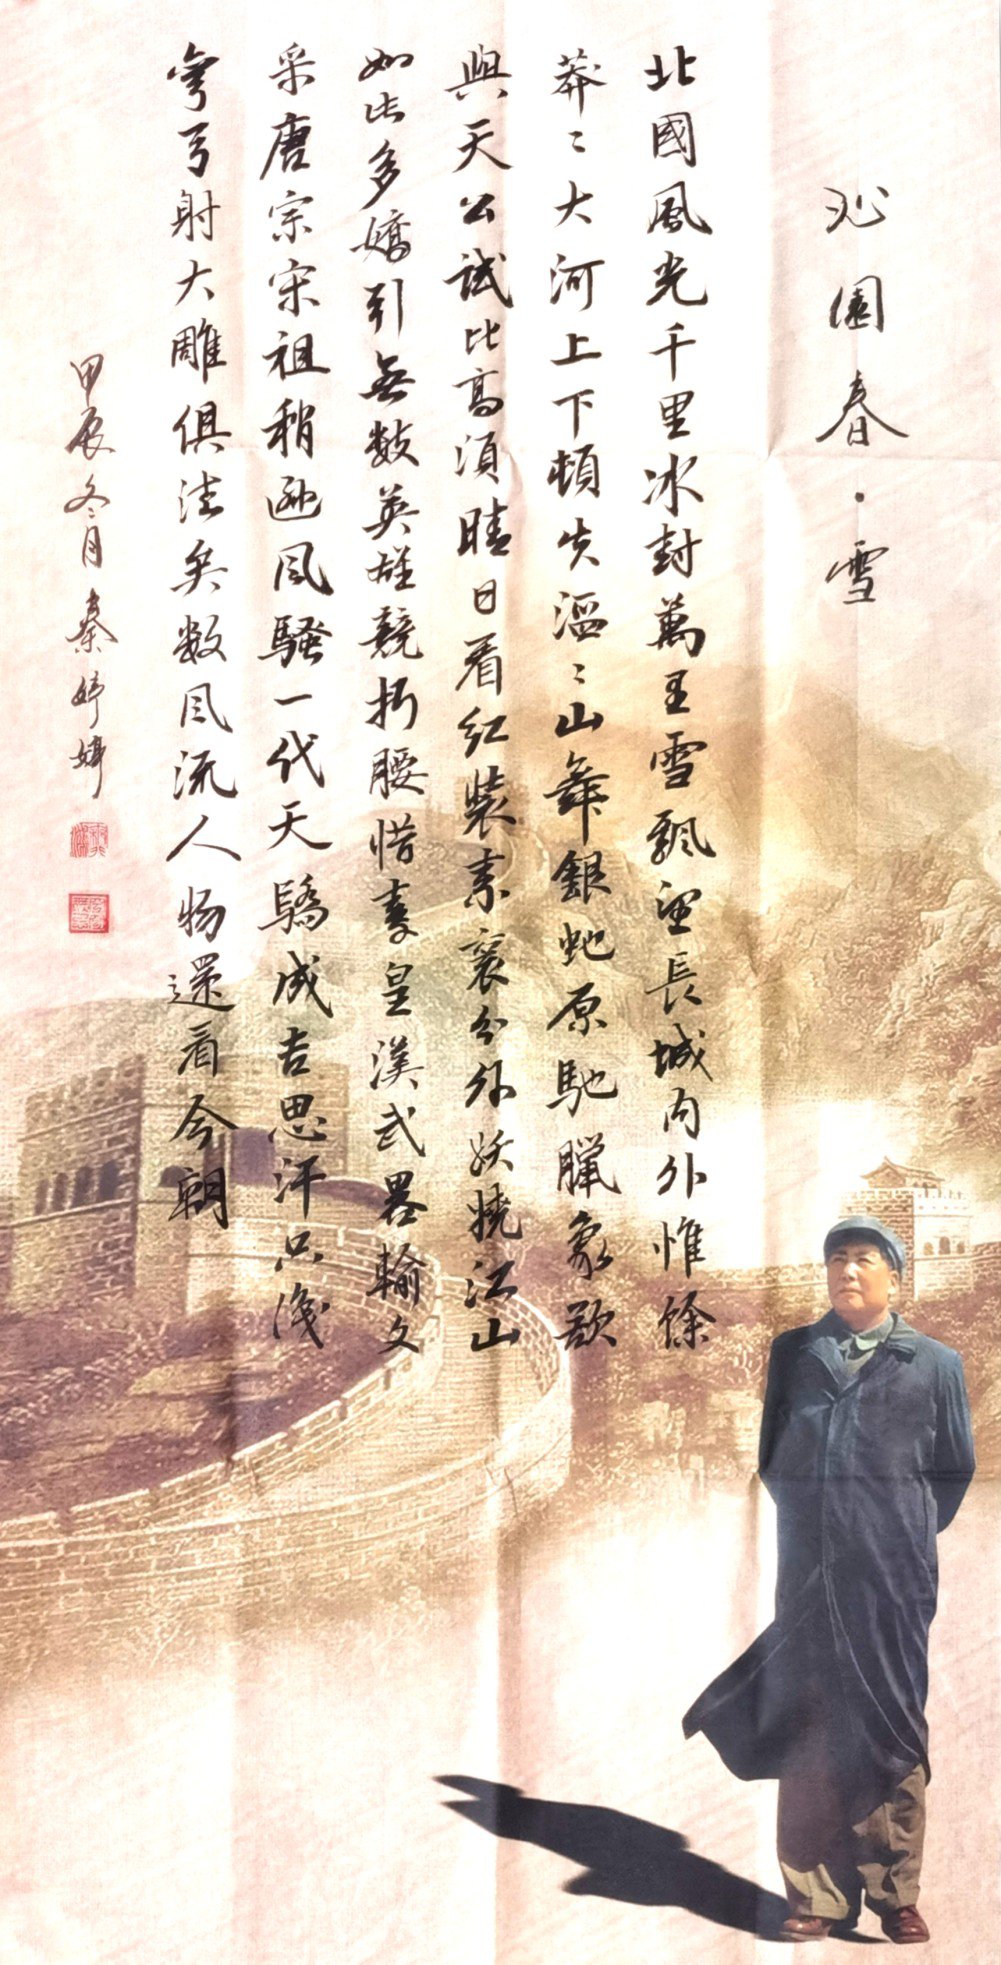 沁園春·雪
北國風光千里冰封萬里雪飄望長城内外惟餘
莽〻大河上下頓失滔〻山舞銀蛇原馳臘象欲
與天公試比高須晴日看紅裝素裹分外妖嬈江山
如此多嬌引無數英雄競折腰惜秦皇漢武畧輸文
采唐宗宋祖稍遜風騷一代天驕成吉思汗只識
彎弓射大雕俱往矣數風流人物還看今朝
甲辰冬月秦婷婷